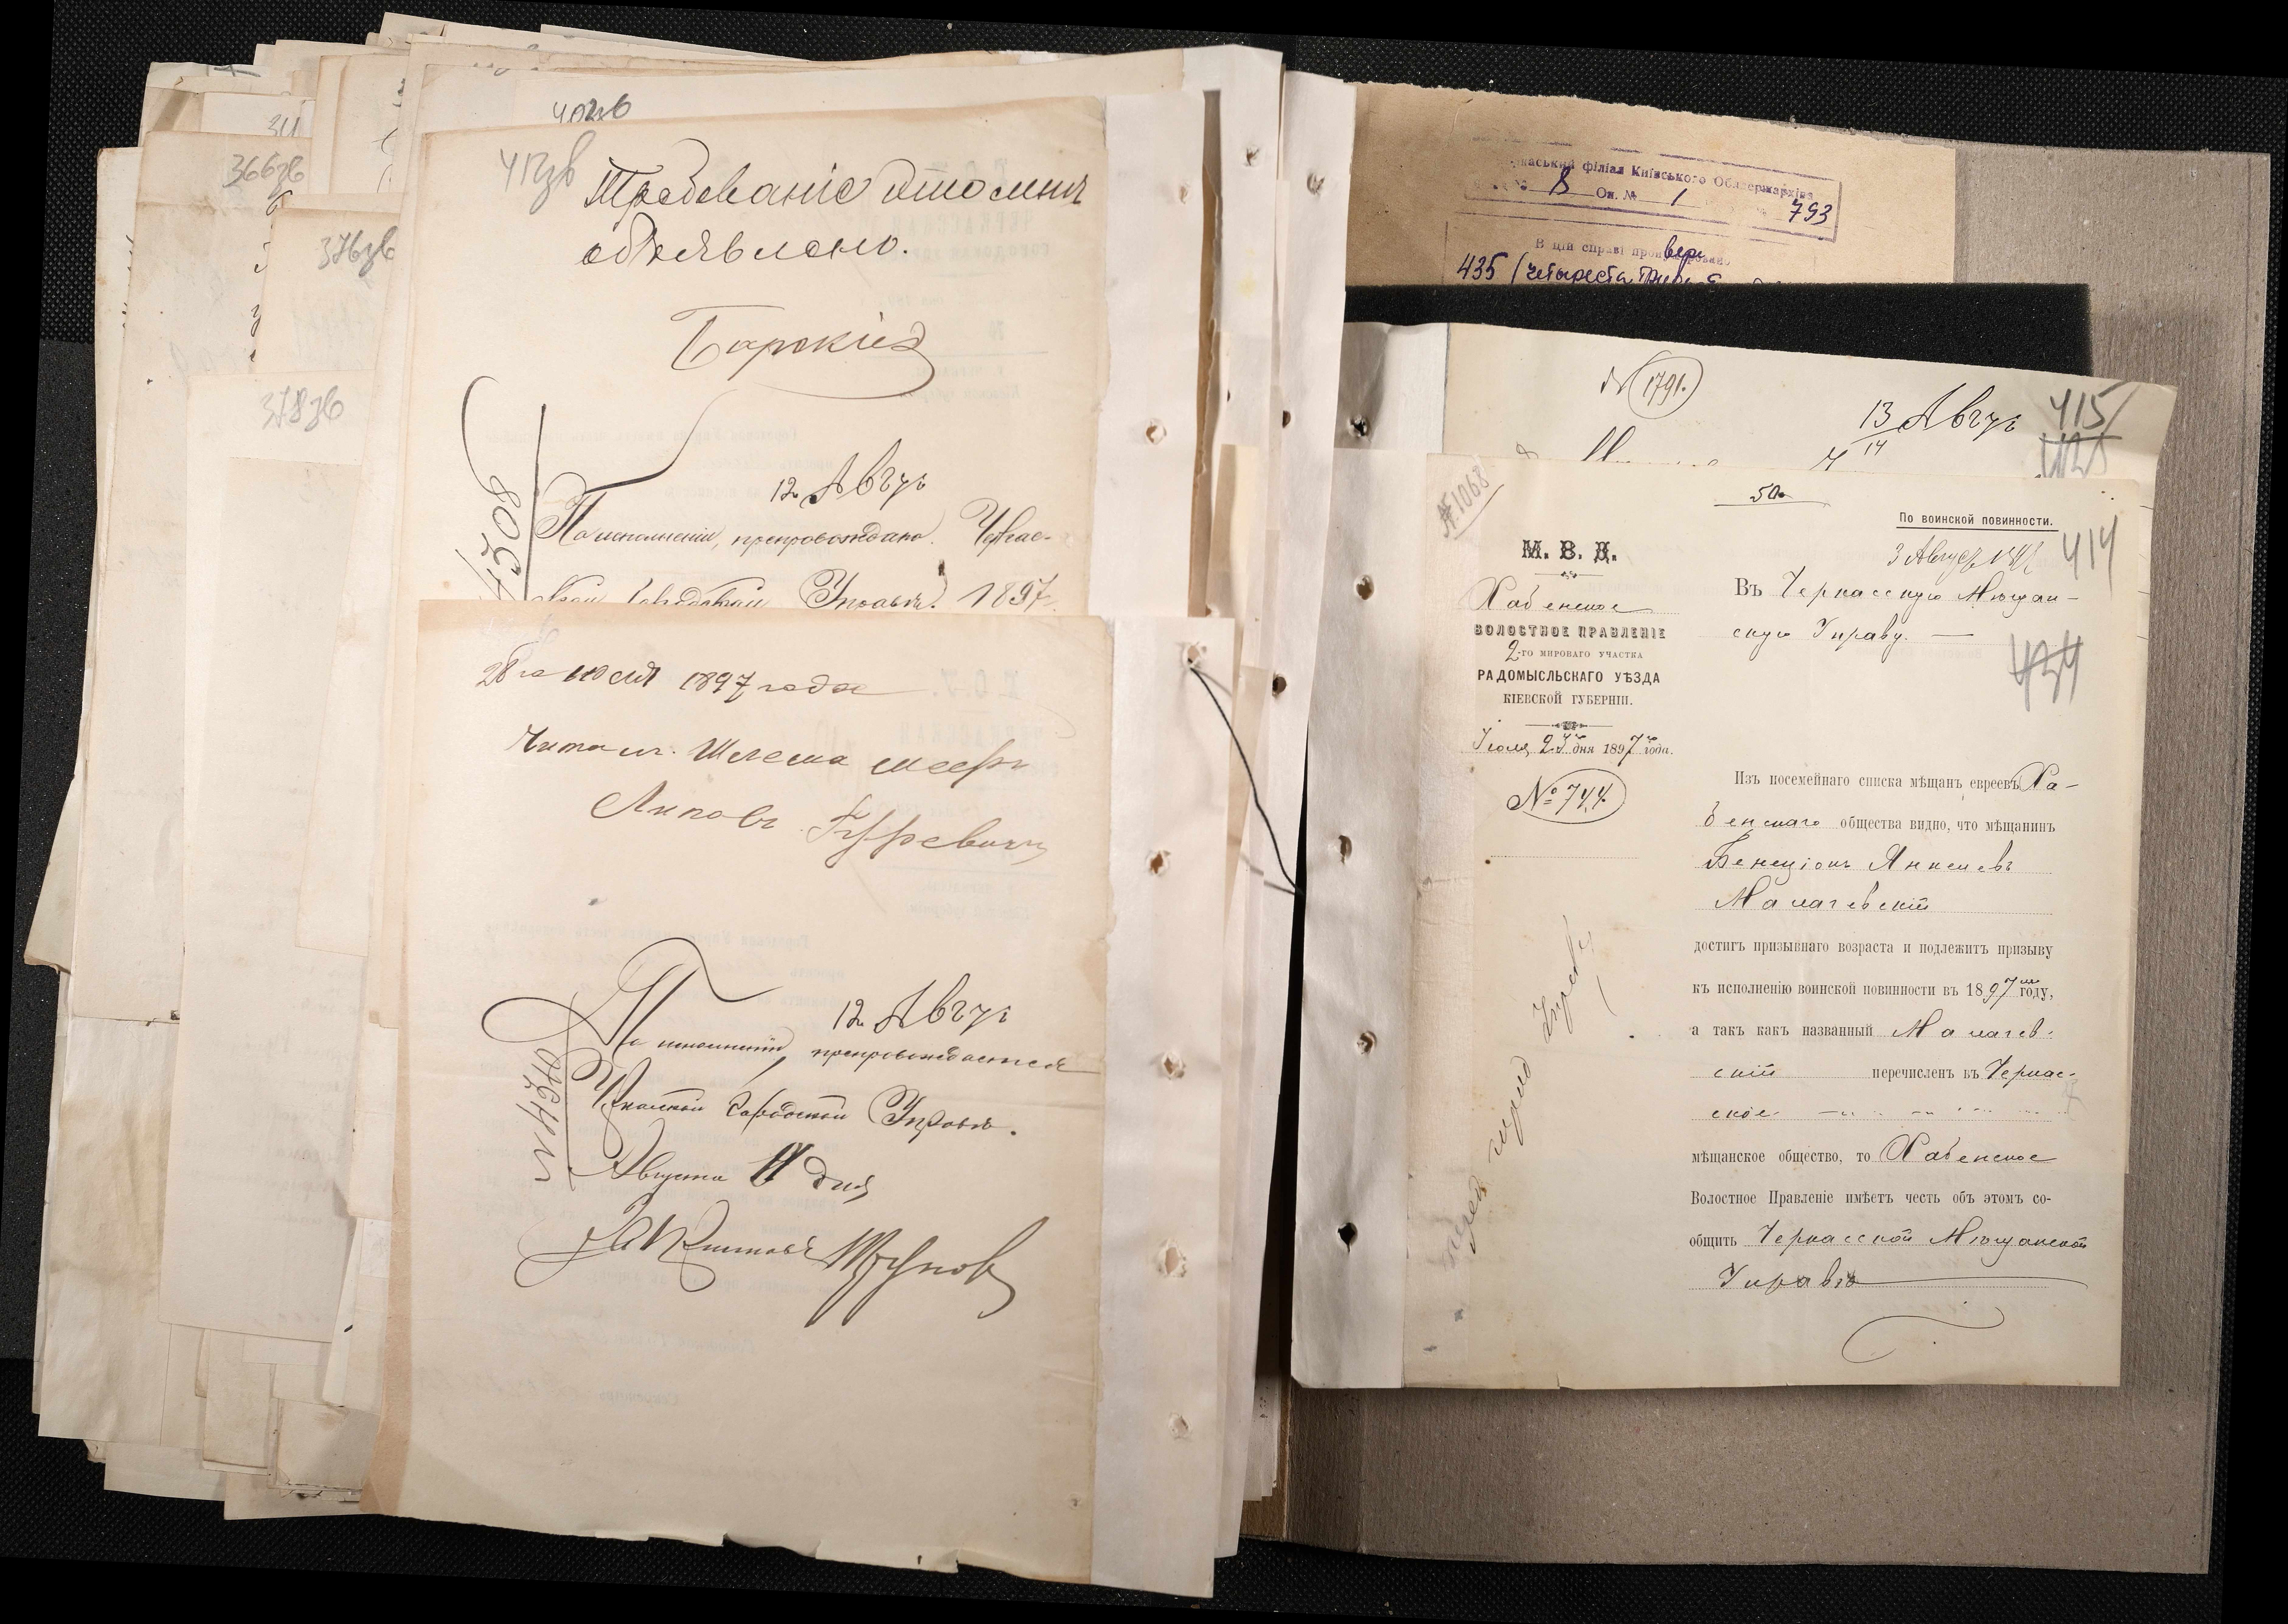 366зв
376зв
378зв
417зв
Требованіе это мнѣ
объявлено.
Барскій
12 Авгу
4508
По исполненіи, препровождано. Черкас-
ской Городской Управѣ. 1897
28го июля 1897 года
Читалъ. Шлема Меер
Липовъ Гурревичъ
12 Авгу
По исполненіи, препровождается
Черкасской Городской Управѣ.
№ 4510
Августа 11 дня
За Пристава
філіал Київського Облдержархіва
8 Оп. № 1 793
В цій справі
435 (четыреста
№ 1791.
13 Авгу
415
14
№ 1068
50
По воинской повинности.
М. В. Д.
3 Августа 1897
414
Хабенское
ВОЛОСТНОЕ ПРАВЛЕНІЕ
2-го МИРОВАГО УЧАСТКА
РАДОМЫСЛЬСКАГО УѢЗДА
КІЕВСКОЙ ГУБЕРНІИ.
Въ Черкасскую Мѣщан-
скую Управу. —
434
Іюля 23го дня 1897го года.
№ 744.
Изъ посемейнаго списка мѣщанъ евреевъ Ха-
бенскаго общества видно, что мѣщанинъ
Бенеціонъ Янкелевъ
Малачевскій
достигъ призывнаго возраста и подлежитъ призыву
къ исполненію воинской повинности въ 1897мъ году,
а такъ какъ названный Малачев-
скій перечисленъ въ Черкас-
ское
мѣщанское общество, то Хабенское
Волостное Правленіе имѣетъ честь объ этомъ со-
общить Черкасской Мѣщанской
Управѣ